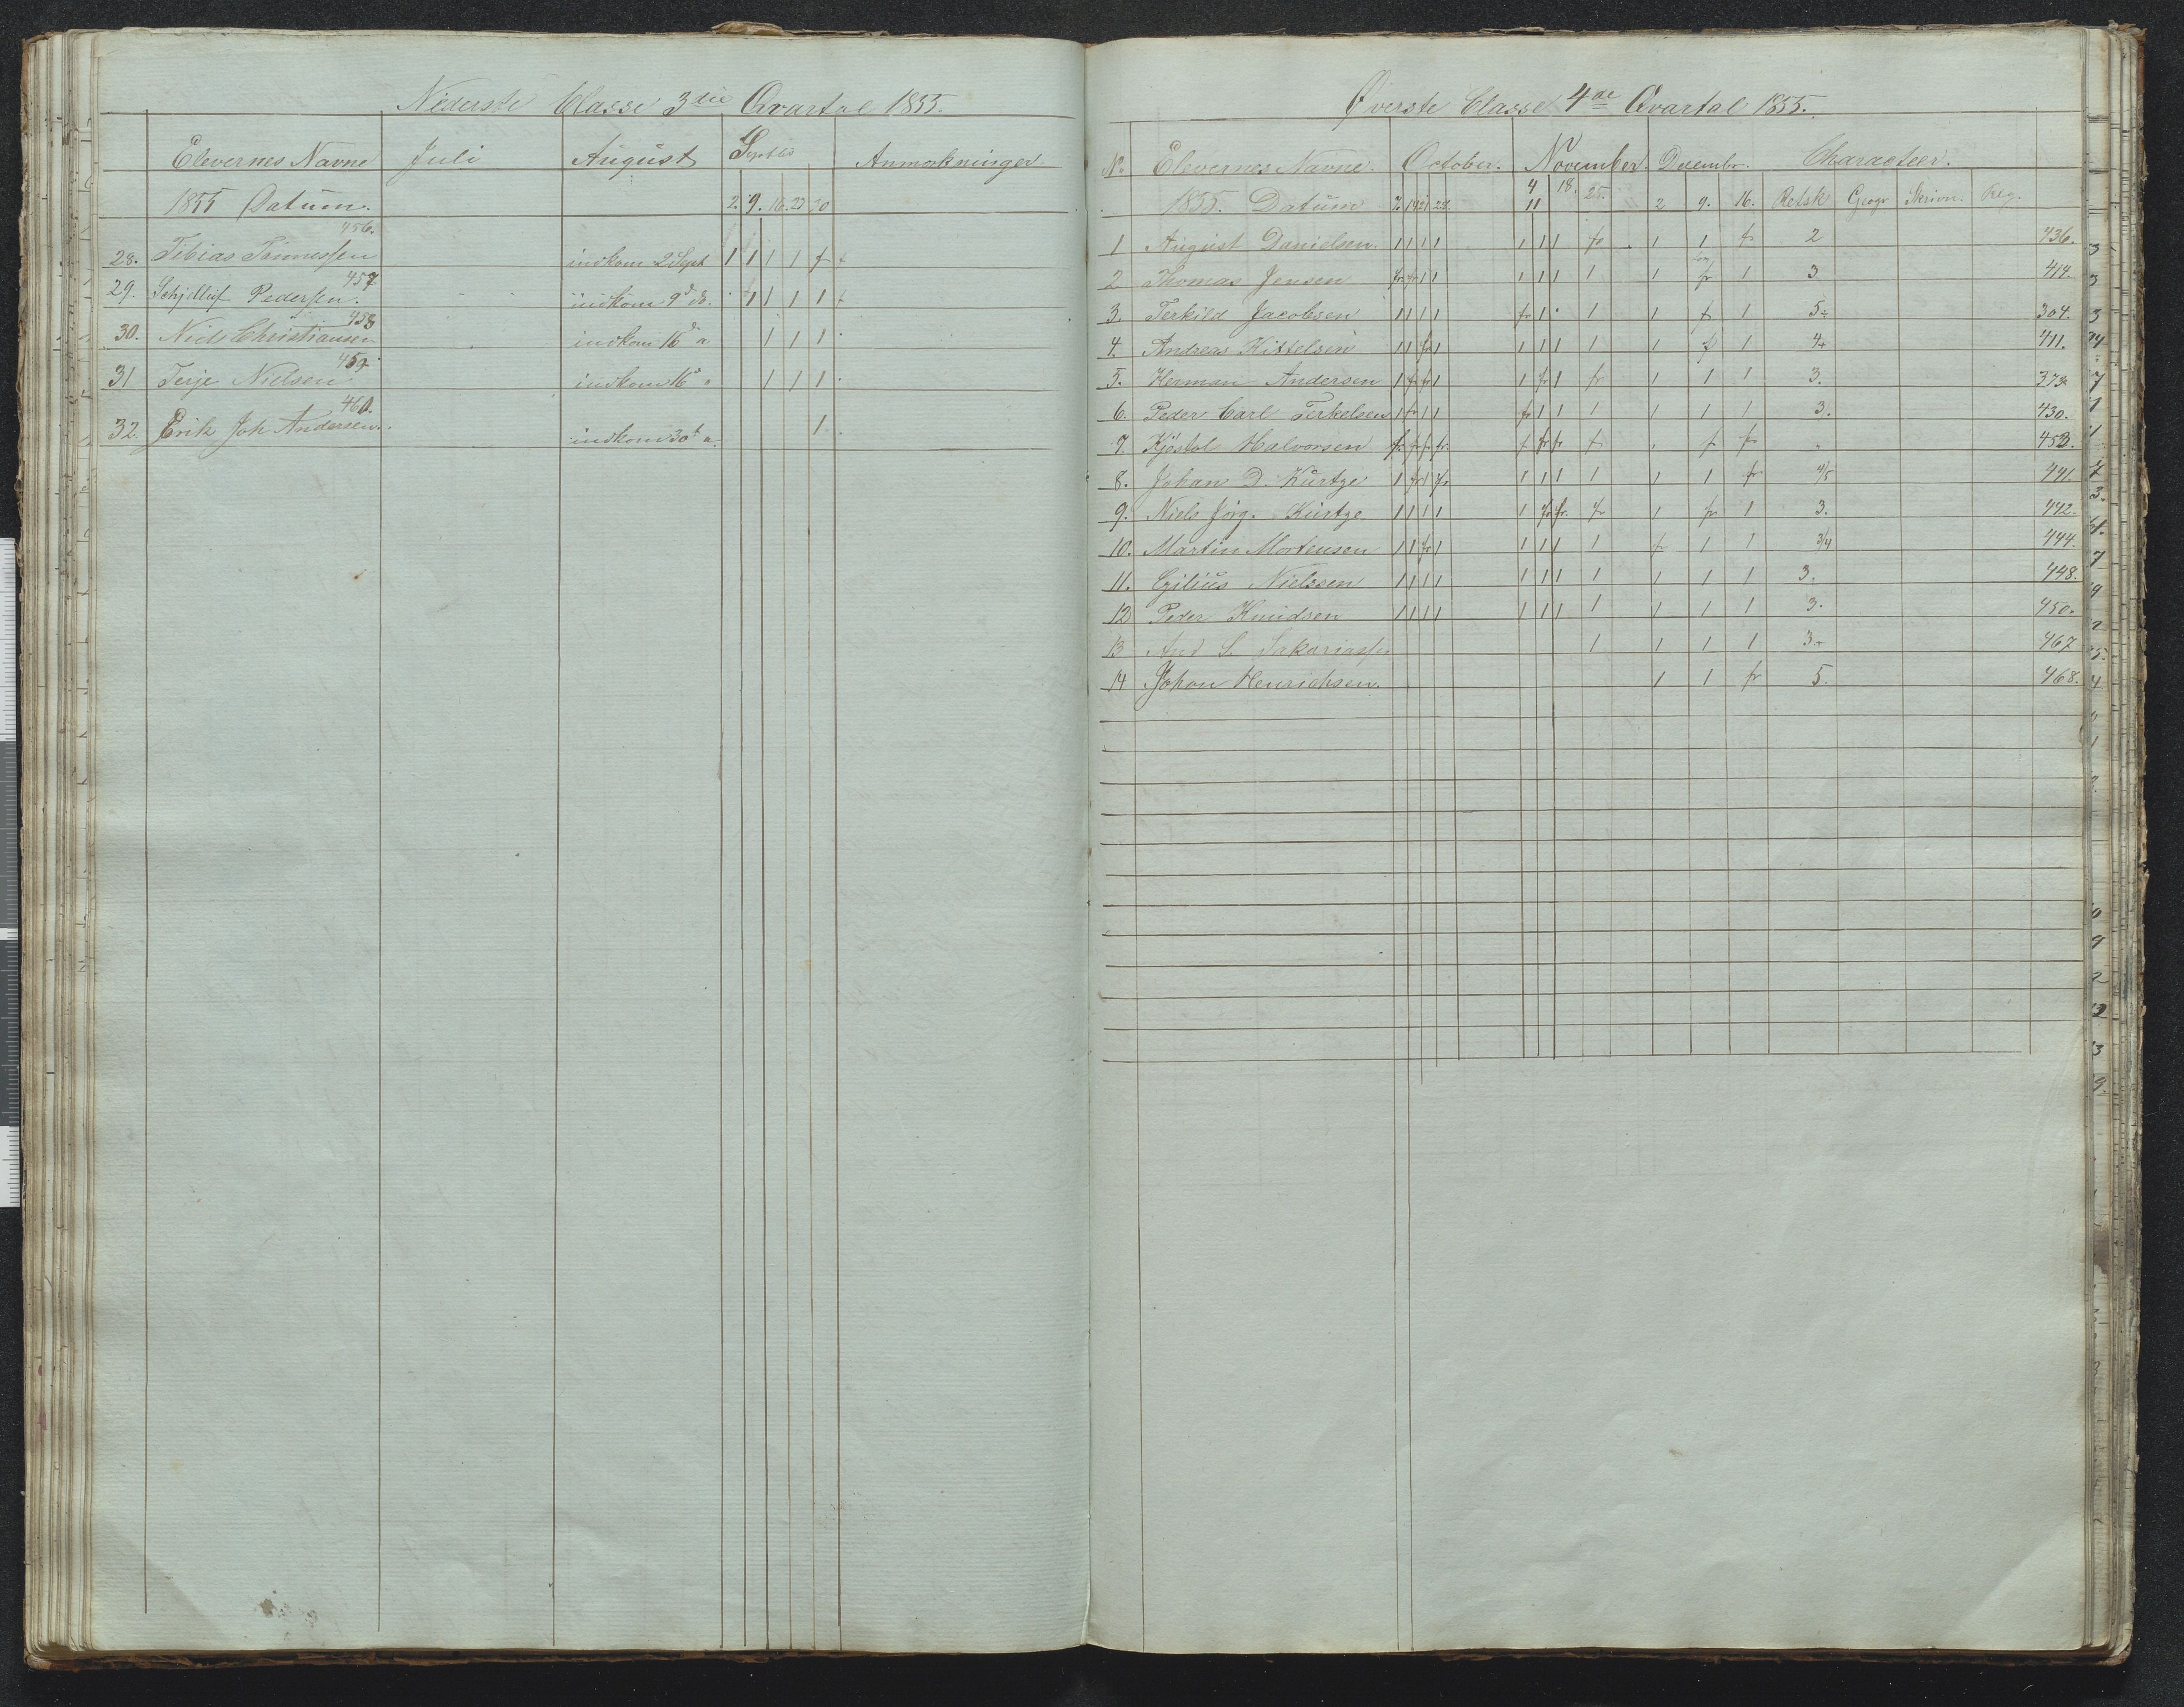 Nederste Classe 3die Qvartal 1855.
Elevernes Navne Juli August Septbr Anmærkninger
1855 Datum. 2. 9. 16. 23 30
456.
28. Tobias Tønnessen indkom 2 Sept 1 1 1 1 f
457
29. Schjelluf Pedersen. indkom 9d do. 1 1 1 1
458
30. Niels Christiansen indkom 16d " 1 1 1
459
31 Terje Nielsen indkom 16d " 1 1 1
460.
32. Erik Joh Andersen. indkom 30t " 1
Øverste Classe 4de Qvartal 1855.
No Elevernes Navne. October. November. Decembr. Characteer.
1855. Datum 7. 14 21 28. 4 11 18. 25. 2 9. 16. Retsk Geogr Skrivn. Reg.
1 August Danielsen. 1 1 1 1 1 1 1 fr 1 1 fr 2 436.
2 Thomas Jensen fr fr 1 1 1 1 1 1 1 fr 1 3 414
3. Terkild Jacobsen 1 1 1 1 fr 1 . 1 1 fr 1 5÷ 304.
4. Andreas Kittelsen 1 1 fr 1 1 1 1 1 1 fr 1 4+ 411.
5. Herman Andersen 1 fr fr 1 1 fr 1 fr 1 1 1 3. 373
6. Peder Carl Terkelsen 1 fr 1 1 fr 1 1 1 1 1 1 3. 430.
7. Kjøstol Halvorsen fr fr fr fr fr fr fr fr . fr fr 453.
8. Johan D. Kurtze 1 fr 1 fr 1 1 1 1 1 1 fr 4/5 441.
9. Niels Jørg. Kurtze 1 1 1 1 1 fr fr. fr 1 fr 1 3. 442.
10. Martin Mortensen 1 1 fr 1 1 1 1 1 fr 1 1 3/4 444.
11. Egilius Nielssen 1 1 1 1 1 1 1 1 1 1 1 3. 448.
12 Peder Knudsen 1 1 1 1 1 1 1 1 1 1 1 3. 450.
13 And S. Sakariassen 1 1 1 1 3÷ 467
14 Johan Henrichsen. 1 1 fr 5. 468.